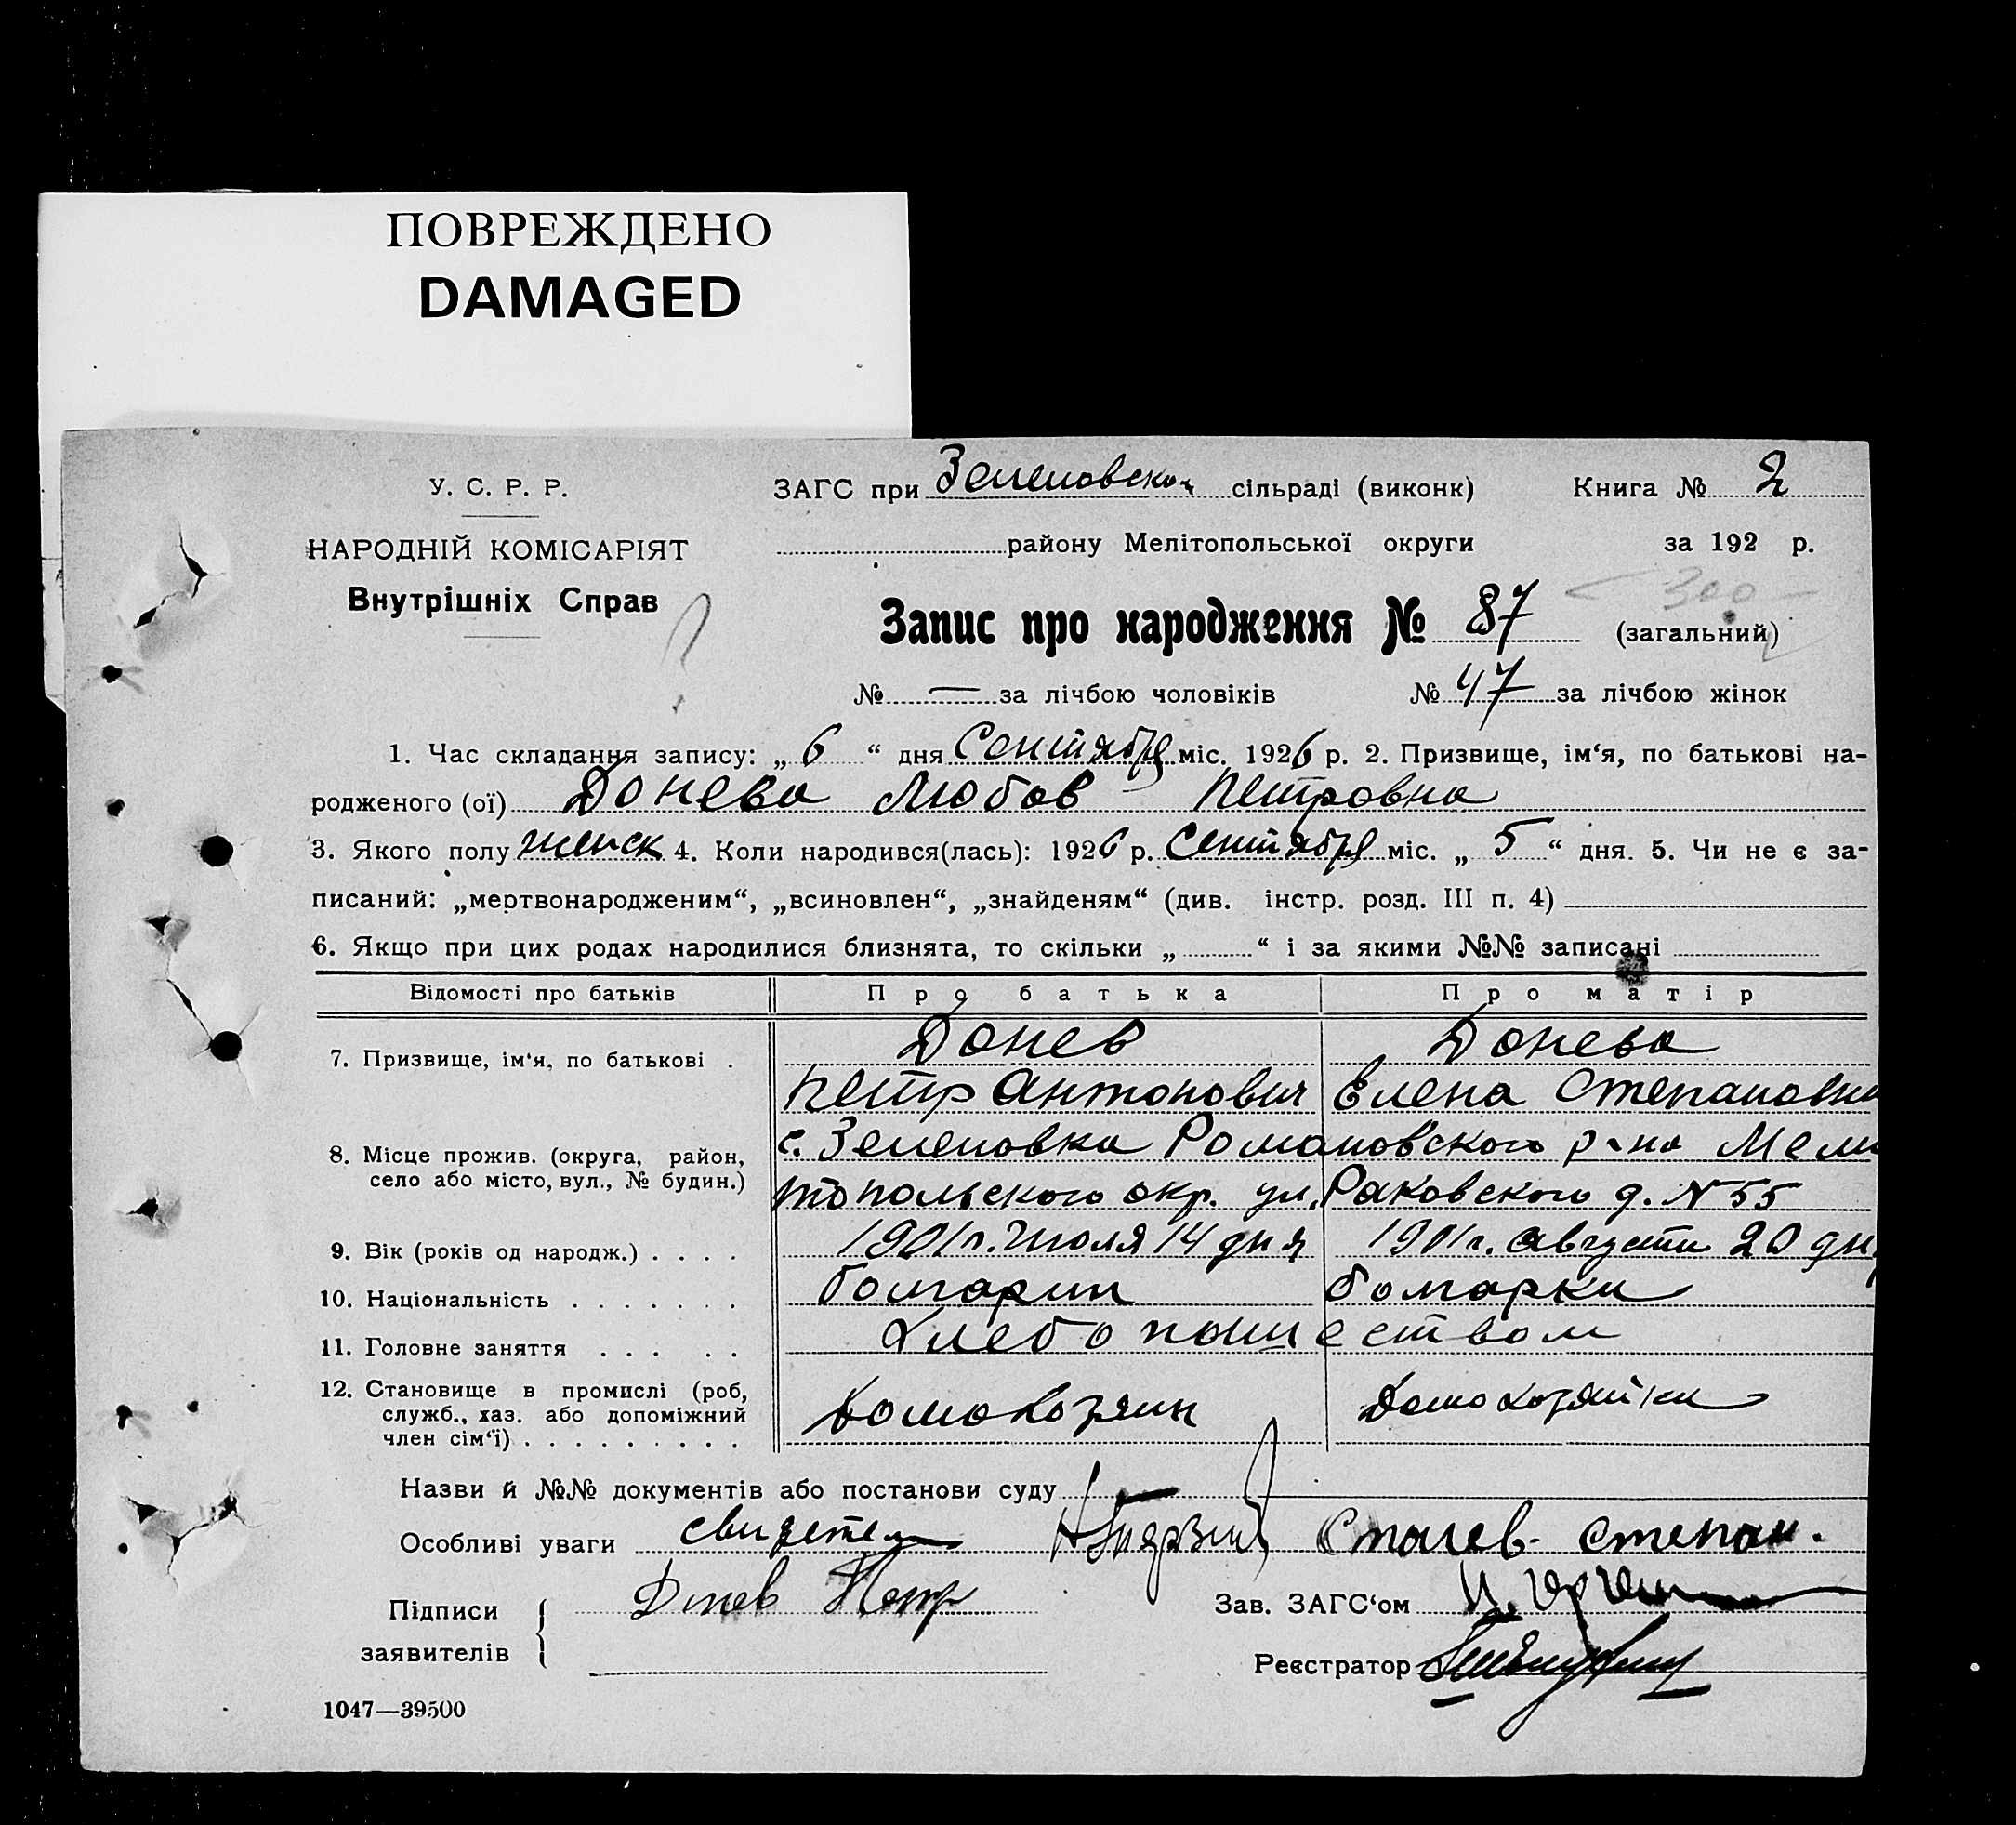 ПОВРЕЖДЕНО
DAMAGED
У. С. Р. Р.
НАРОДНІЙ КОМІСАРІЯТ
Внутрішніх Справ
ЗАГС при Зеленовской сільраді (виконк) Книга № 2
району Мелітопольської округи за 192 р.
300
Запис про народження № 87 (загальний)
№ — за лічбою чоловіків № 47 за лічбою жінок
1. Час складання запису: „ 6 “ дня Сентября міс. 1926 р. 2. Призвище, ім‘я, по батькові на-
родженого (ої) Донева Любов Петровна
3. Якого полу женск 4. Коли народився(лась): 1926 р. Сентября міс. „ 5 “ дня. 5. Чи не є за-
писаний: „мертвонародженим“, „всиновлен“, „знайденям“ (див. інстр. розд. III п. 4)
6. Якщо при цих родах народилися близнята, то скільки „ “ і за якими №№ записані
Відомості про батьків Про батька Про матір
7. Призвище, ім‘я, по батькові . Донев Донева
Петр Антонович Елена Степановна
8. Місце прожив. (округа, район, село або місто, вул., № будин.) с. Зеленовка Романовского р-на Мели
топольского окр. ул. Раковского д. N 55
9. Вік (років од народж.) . . . . 1901 г. Июля 14 дня 1901 г. августа 20 дня
10. Національність . . . . . . . болгарин болгарка
11. Головне заняття . . . . . Хлебопашеством
12. Становище в промислі (роб, служб., хаз. або допоміжний член сім‘ї) . . . . . . . . . Домохозяин Домохозяйка
Назви й №№ документів або постанови суду
Особливі уваги свидетели Степан.
Підписи заявителів Донев Петр Зав. ЗАГС‘ом
Реєстратор
1047—39500